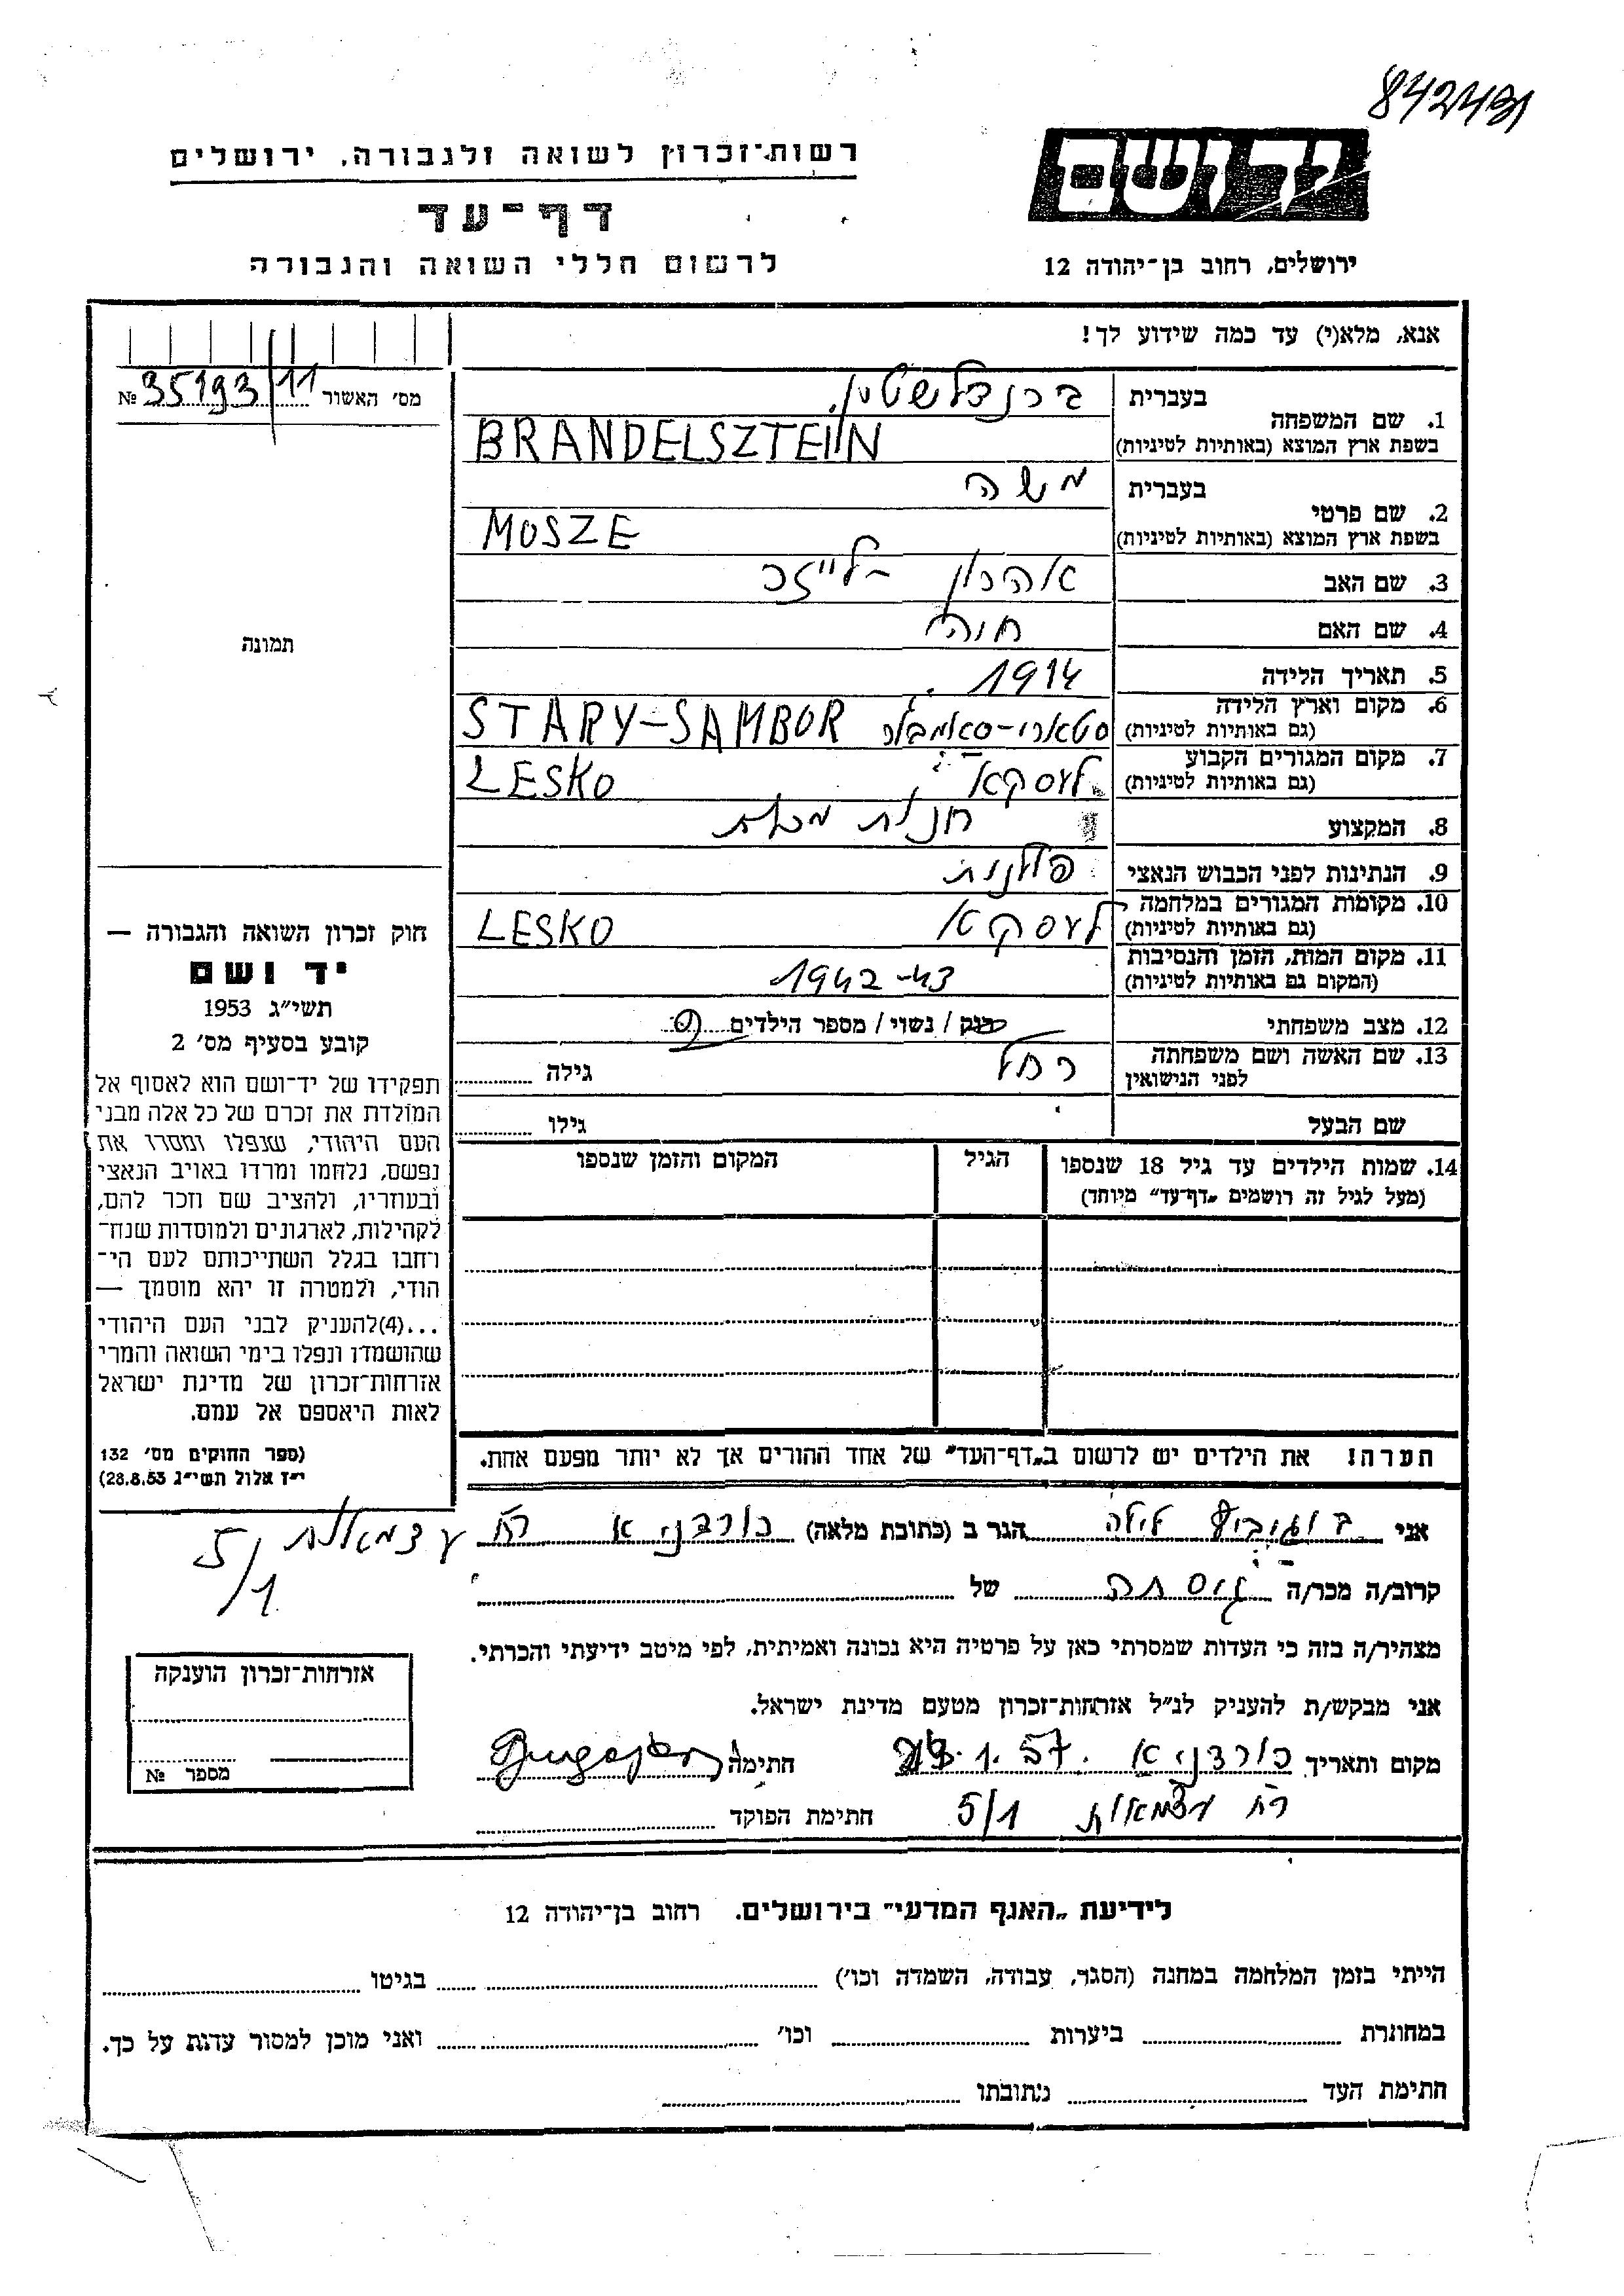 842431
רשות־זכרון לשואה ולגבורה, ירושלים
יד ושם
דף־עד
לרשום חללי השואה והגבורה
ירושלים, רחוב בן־יהודה 12
אנא, מלא(י) עד כמה שידוע לך!
מס׳ האשור № 35193/11
בעברית ברנדלשטיין
1. שם המשפחה
בשפת ארץ המוצא (באותיות לטיניות) BRANDELSZTEIN
בעברית משה
2. שם פרטי
בשפת ארץ המוצא (באותיות לטיניות) MOSZE
3. שם האב אהרון - לייזר
4. שם האם חוה
5. תאריך הלידה 1914
6. מקום וארץ הלידה סטארי-סאמבור STARY-SAMBOR
(גם באותיות לטיניות)
7. מקום המגורים הקבוע לעסקא LESKO
(גם באותיות לטיניות)
8. המקצוע חנות מכלת
9. הנתינות לפני הכבוש הנאצי פולנית
10. מקומות המגורים במלחמה לעסקא LESKO
(גם באותיות לטיניות)
11. מקום המות, הזמן והנסיבות 1942-43
(המקום גם באותיות לטיניות)
12. מצב משפחתי רוק / נשוי / מספר הילדים
13. שם האשה ושם משפחתה רחל גילה
לפני הנישואין
שם הבעל גילו
14. שמות הילדים עד גיל 18 שנספו הגיל המקום והזמן שנספו
(מעל לגיל זה רושמים „דף־עד” מיוחד)
הערה! את הילדים יש לרשום ב„דף־העד” של אחד ההורים אך לא יותר מפעם אחת.
תמונה
חוק זכרון השואה והגבורה —
יד ושם
תשי״ג 1953
קובע בסעיף מס׳ 2
תפקידו של יד־ושם הוא לאסוף אל
המולדת את זכרם של כל אלה מבני
העם היהודי, שנפלו ומסרו את
נפשם, נלחמו ומרדו באויב הנאצי
ובעוזריו, ולהציב שם וזכר להם,
לקהילות, לארגונים ולמוסדות שנח־
רחבו בגלל השתייכותם לעם הי־
הודי, ולמטרה זו יהא מוסמך —
...(4)להעניק לבני העם היהודי
שהושמדו ונפלו בימי השואה והמרי
אזרחות־זכרון של מדינת ישראל
לאות היאספם אל עמם.
(ספר החוקים מס׳ 132
י״ז אלול תשי״ג 28.8.53)
אני לילה הגר ב (כתובת מלאה) כורדניא רח עצמאות
5/1
קרוב/ה מכר/ה גיסתה של
מצהיר/ה בזה כי העדות שמסרתי כאן על פרטיה היא נכונה ואמיתית, לפי מיטב ידיעתי והכרתי.
אני מבקש/ת להעניק לנ״ל אזרחות־זכרון מטעם מדינת ישראל.
מקום ותאריך כורדניא 1.57. חתימה
רח עצמאות 5/1 חתימת הפוקד
אזרחות־זכרון הוענקה
מספר №
לידיעת „האגף המדעי” בירושלים. רחוב בן־יהודה 12
הייתי בזמן המלחמה במחנה (הסגר, עבודה, השמדה וכו׳) בגיטו
במחתרת ביערות וכו׳ ואני מוכן למסור עדות על כך.
חתימת העד כתובתו